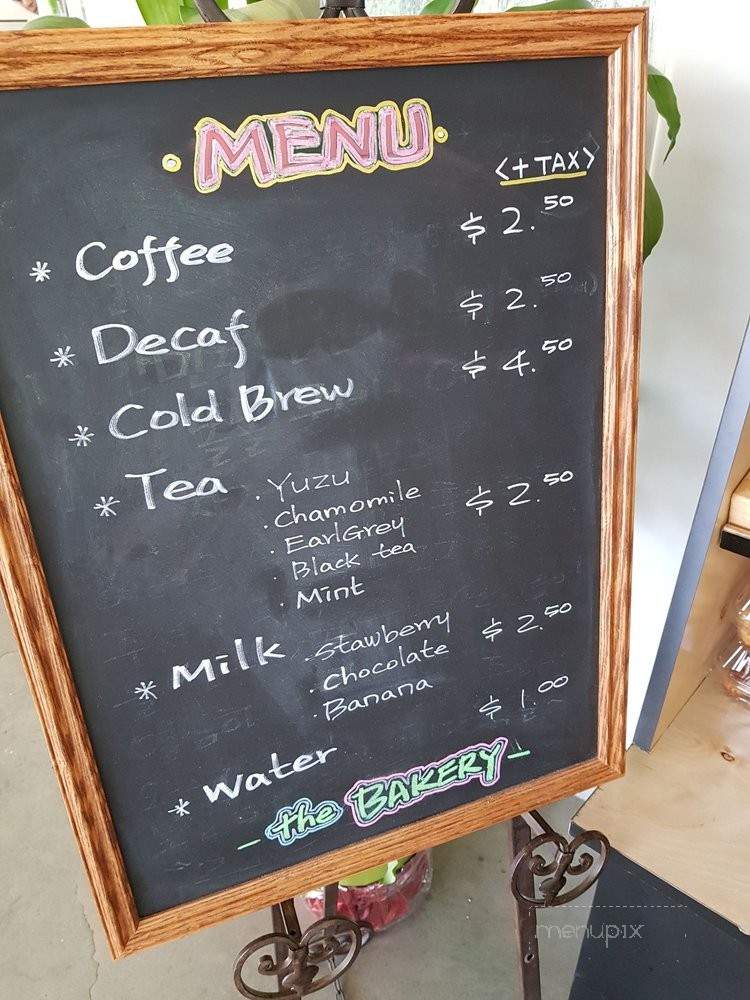 MENU
<+ TAX>
* Coffee $ 2.50
* Decaf $ 2.50
* Cold Brew $ 4.50
* Tea . Yuzu $ 2.50
. Chamomile
. EarlGrey
. Black tea
. Mint
* Milk . stawberry $ 2.50
. Chocolate
. Banana
* Water $ 1.00
- the BAKERY -
menupix